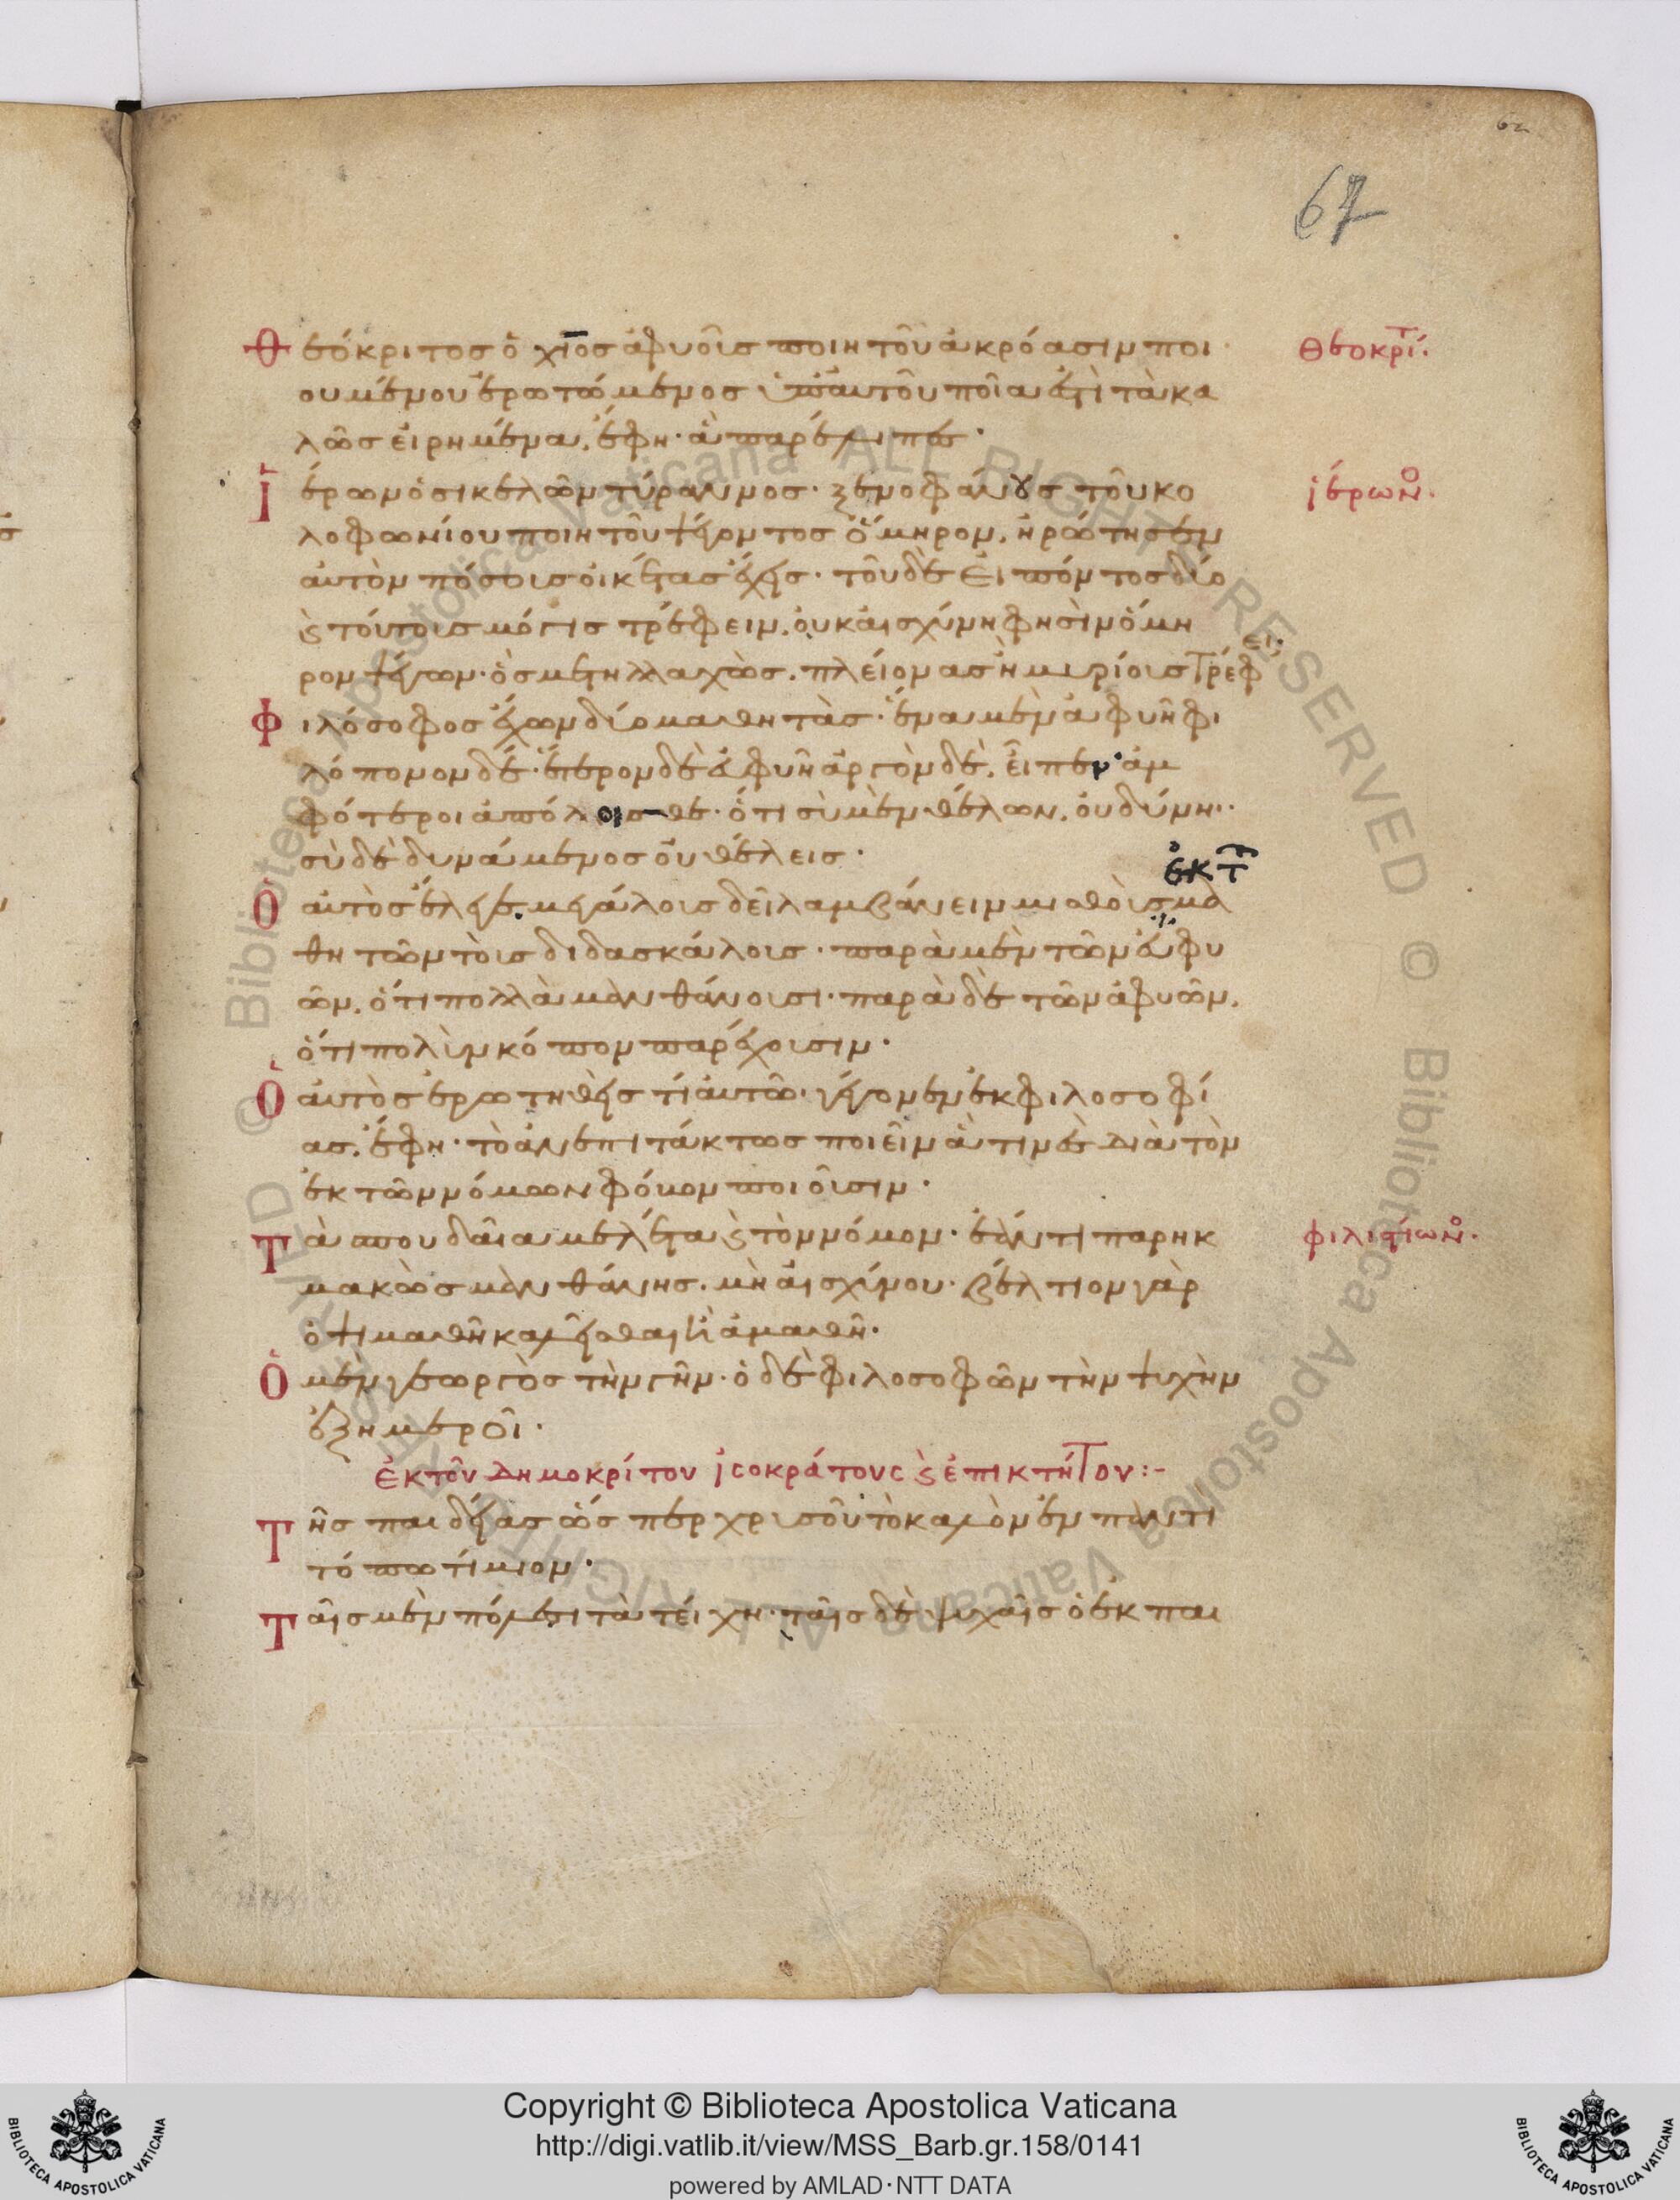 62
67
Θεόκριτος ὁ χῖος ἀφυοῦς ποιητοῦ ἀκρόασιν ποι
Θεοκρίτ.
ουμένου ἐρωτώμενος ὑπ' αὐτοῦ ποῖα ἐστὶ τὰ κα
λῶς εἰρημένα, ἔφη· ἃ παρέλιπες·
Ἱέρων ὁ σικελῶν τύραννος· ξενοφάνους τοῦ κο
ἱέρων
λοφωνίου ποιητοῦ ψέγοντος ὅμηρον, ἠρώτησεν
αὐτὸν πόσους οἰκέτας ἔχεις· τοῦ δὲ εἰπόντος δύο
ϛ τούτους μόγις τρέφειν, οὐκ αἰσχύνη φησὶν ὅμη
ρον ψέγων· ὃς μετηλλαχὼς, πλείονας ἢ μυρίους τρέφει·
Φιλόσοφος ἔχων δύο μαθητὰς· ἕνα μὲν ἀφυῆ φι
λόπονον δέ· ἕτερον δὲ εὐφυῆ ἀργὸν δὲ, εἶπεν· ἀμ
φότεροι ἀπόλοισθε· ὅτι σὺ μὲν θέλων, οὐ δύνη·
σὺ δὲ δυνάμενος οὐ θέλεις·
ἐκ τ
Ὁ αὐτὸς ἔλεγε μεγάλους δεῖ λαμβάνειν μισθοὺς μα
θητῶν τοὺς διδασκάλους· παρὰ μὲν τῶν εὐφυ
ῶν, ὅτι πολλὰ μανθάνουσι· παρὰ δὲ τῶν ἀφυῶν,
ὅτι πολὺν κόπον παρέχουσιν·
Ὁ αὐτὸς ἐρωτηθεὶς τί αὐτῶ· γέγονεν ἐκ φιλοσοφί
ας, ἔφη· τὸ ἀνεπιτάκτως ποιεῖν ἅ τινες διὰ τὸν
ἐκ τῶν νόμων φόβον ποιοῦσιν·
Τὰ σπουδαῖα μελέτα ϛ τὸν νόμον· ἐάν τι παρηκ
φιλιστίων
μακὼς μανθάνης, μὴ αἰσχύνου· βέλτιον γὰρ
ὀψιμαθῆ καλεῖσθαι ἢ ἀμαθῆ·
Ὁ μὲν γεωργὸς τὴν γῆν· ὁ δὲ φιλοσοφῶν τὴν ψυχὴν
ἐξημεροῖ·
ἐκ τοῦ Δημοκρίτου ἰσοκράτους ϛ ἐπικτήτου:-
Τῆς παιδείας ὥσπερ χρυσοῦ τὸ καλὸν ἐν παντὶ
τόπω τίμιον·
Ταῖς μὲν πόλεσι τὰ τείχη· ταῖς δὲ ψυχαῖς ὁ ἐκ παι
Copyright © Biblioteca Apostolica Vaticana
http://digi.vatlib.it/view/MSS_Barb.gr.158/0141
powered by AMLAD·NTT DATA
BIBLIOTECA APOSTOLICA VATICANA
BIBLIOTECA APOSTOLICA VATICANA
© Biblioteca Apostolica Vaticana ALL RIGHTS RESERVED © Biblioteca Apostolica Vaticana ALL RIGHTS RESERVED